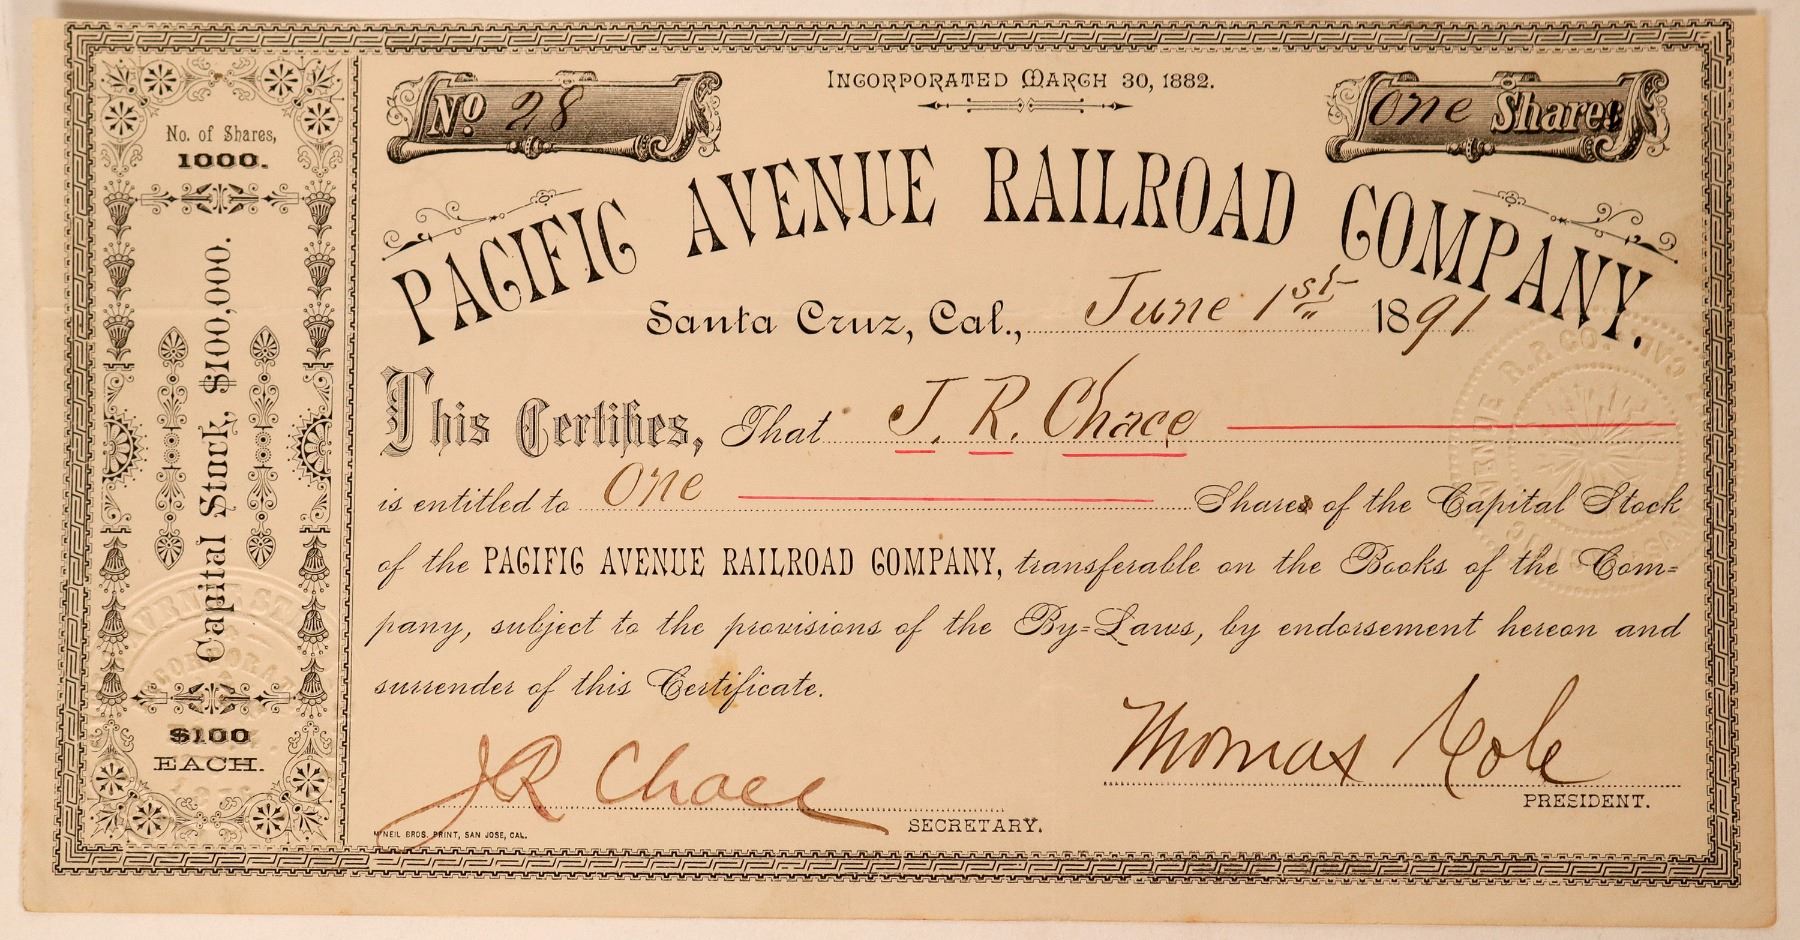 INCORPORATED MARCH 30, 1882.
No 28
one Shares
No. of Shares,
1000.
Capital Stock, $100,000.
$100
EACH.
PACIFIC AVENUE RAILROAD COMPANY.
Santa Cruz, Cal., June 1st 1891
This Certifies, That J. R. Chace
is entitled to One Shares of the Capital Stock
of the PACIFIC AVENUE RAILROAD COMPANY, transferable on the Books of the Com=
pany, subject to the provisions of the By=Laws, by endorsement hereon and
surrender of this Certificate.
J R Chace
SECRETARY.
Thomas Cole
PRESIDENT.
McNEIL BROS. PRINT, SAN JOSE, CAL.
AVENUE R.R. CO.